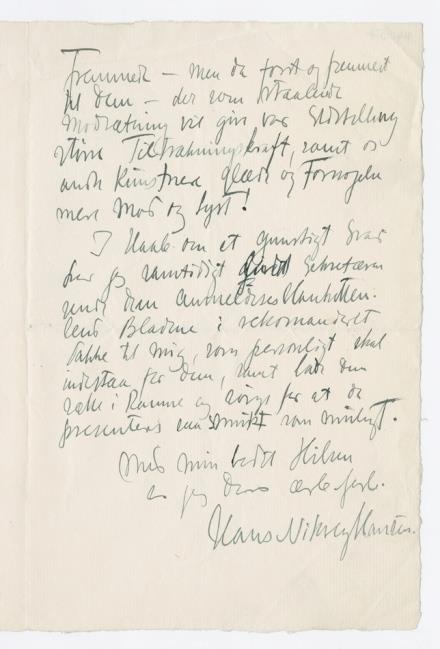 Fremmede – men da først og fremmest
til Dem – der som straalende
Modsætning vil give vor Udstilling
større Tiltrækningskraft, samt os
andre Kunstnere Glæde og Fornøjelse
mere Mod og Lyst!
I Haab om et gunstigt Svar
beder jeg samtidigt
sende dem
Bladene i rekomanderet
Pakke til mig, som personligt skal
indestaa for dem, samt lade dem
sætte i Ramme og sørge for at de
presenteres saa smukt som muligt.
Med min bedste Hilsen
er jeg Deres ærb. forb.
Hans Nikolaj Hansen.